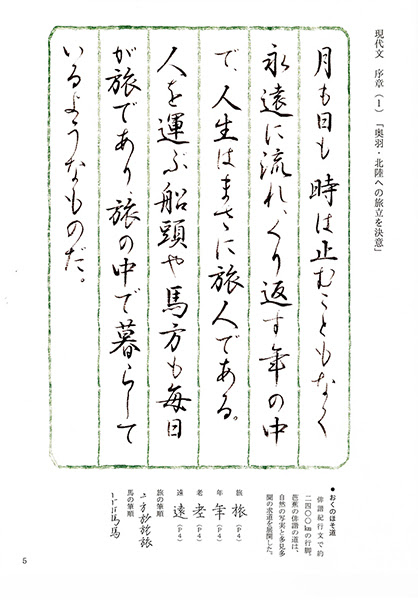 現代文 序章(1)「奥羽・北陸への旅立を決意」
月も日も 時は止むこともなく
永遠に流れ、くり返す年の中
で、人生はまさに旅人である。
人を運ぶ船頭や馬方も毎日
が旅であり、旅の中で暮らして
いるようなものだ。
●おくのほそ道
俳諧紀行文で約
二四〇〇kmの行脚。
芭蕉の俳諧の道は、
自然の写実と多見多
聞の求道を展開した。
旅 旅 (P4)
年 年 (P4)
老 老 (P4)
遠 遠 (P4)
旅の筆順
馬の筆順
5